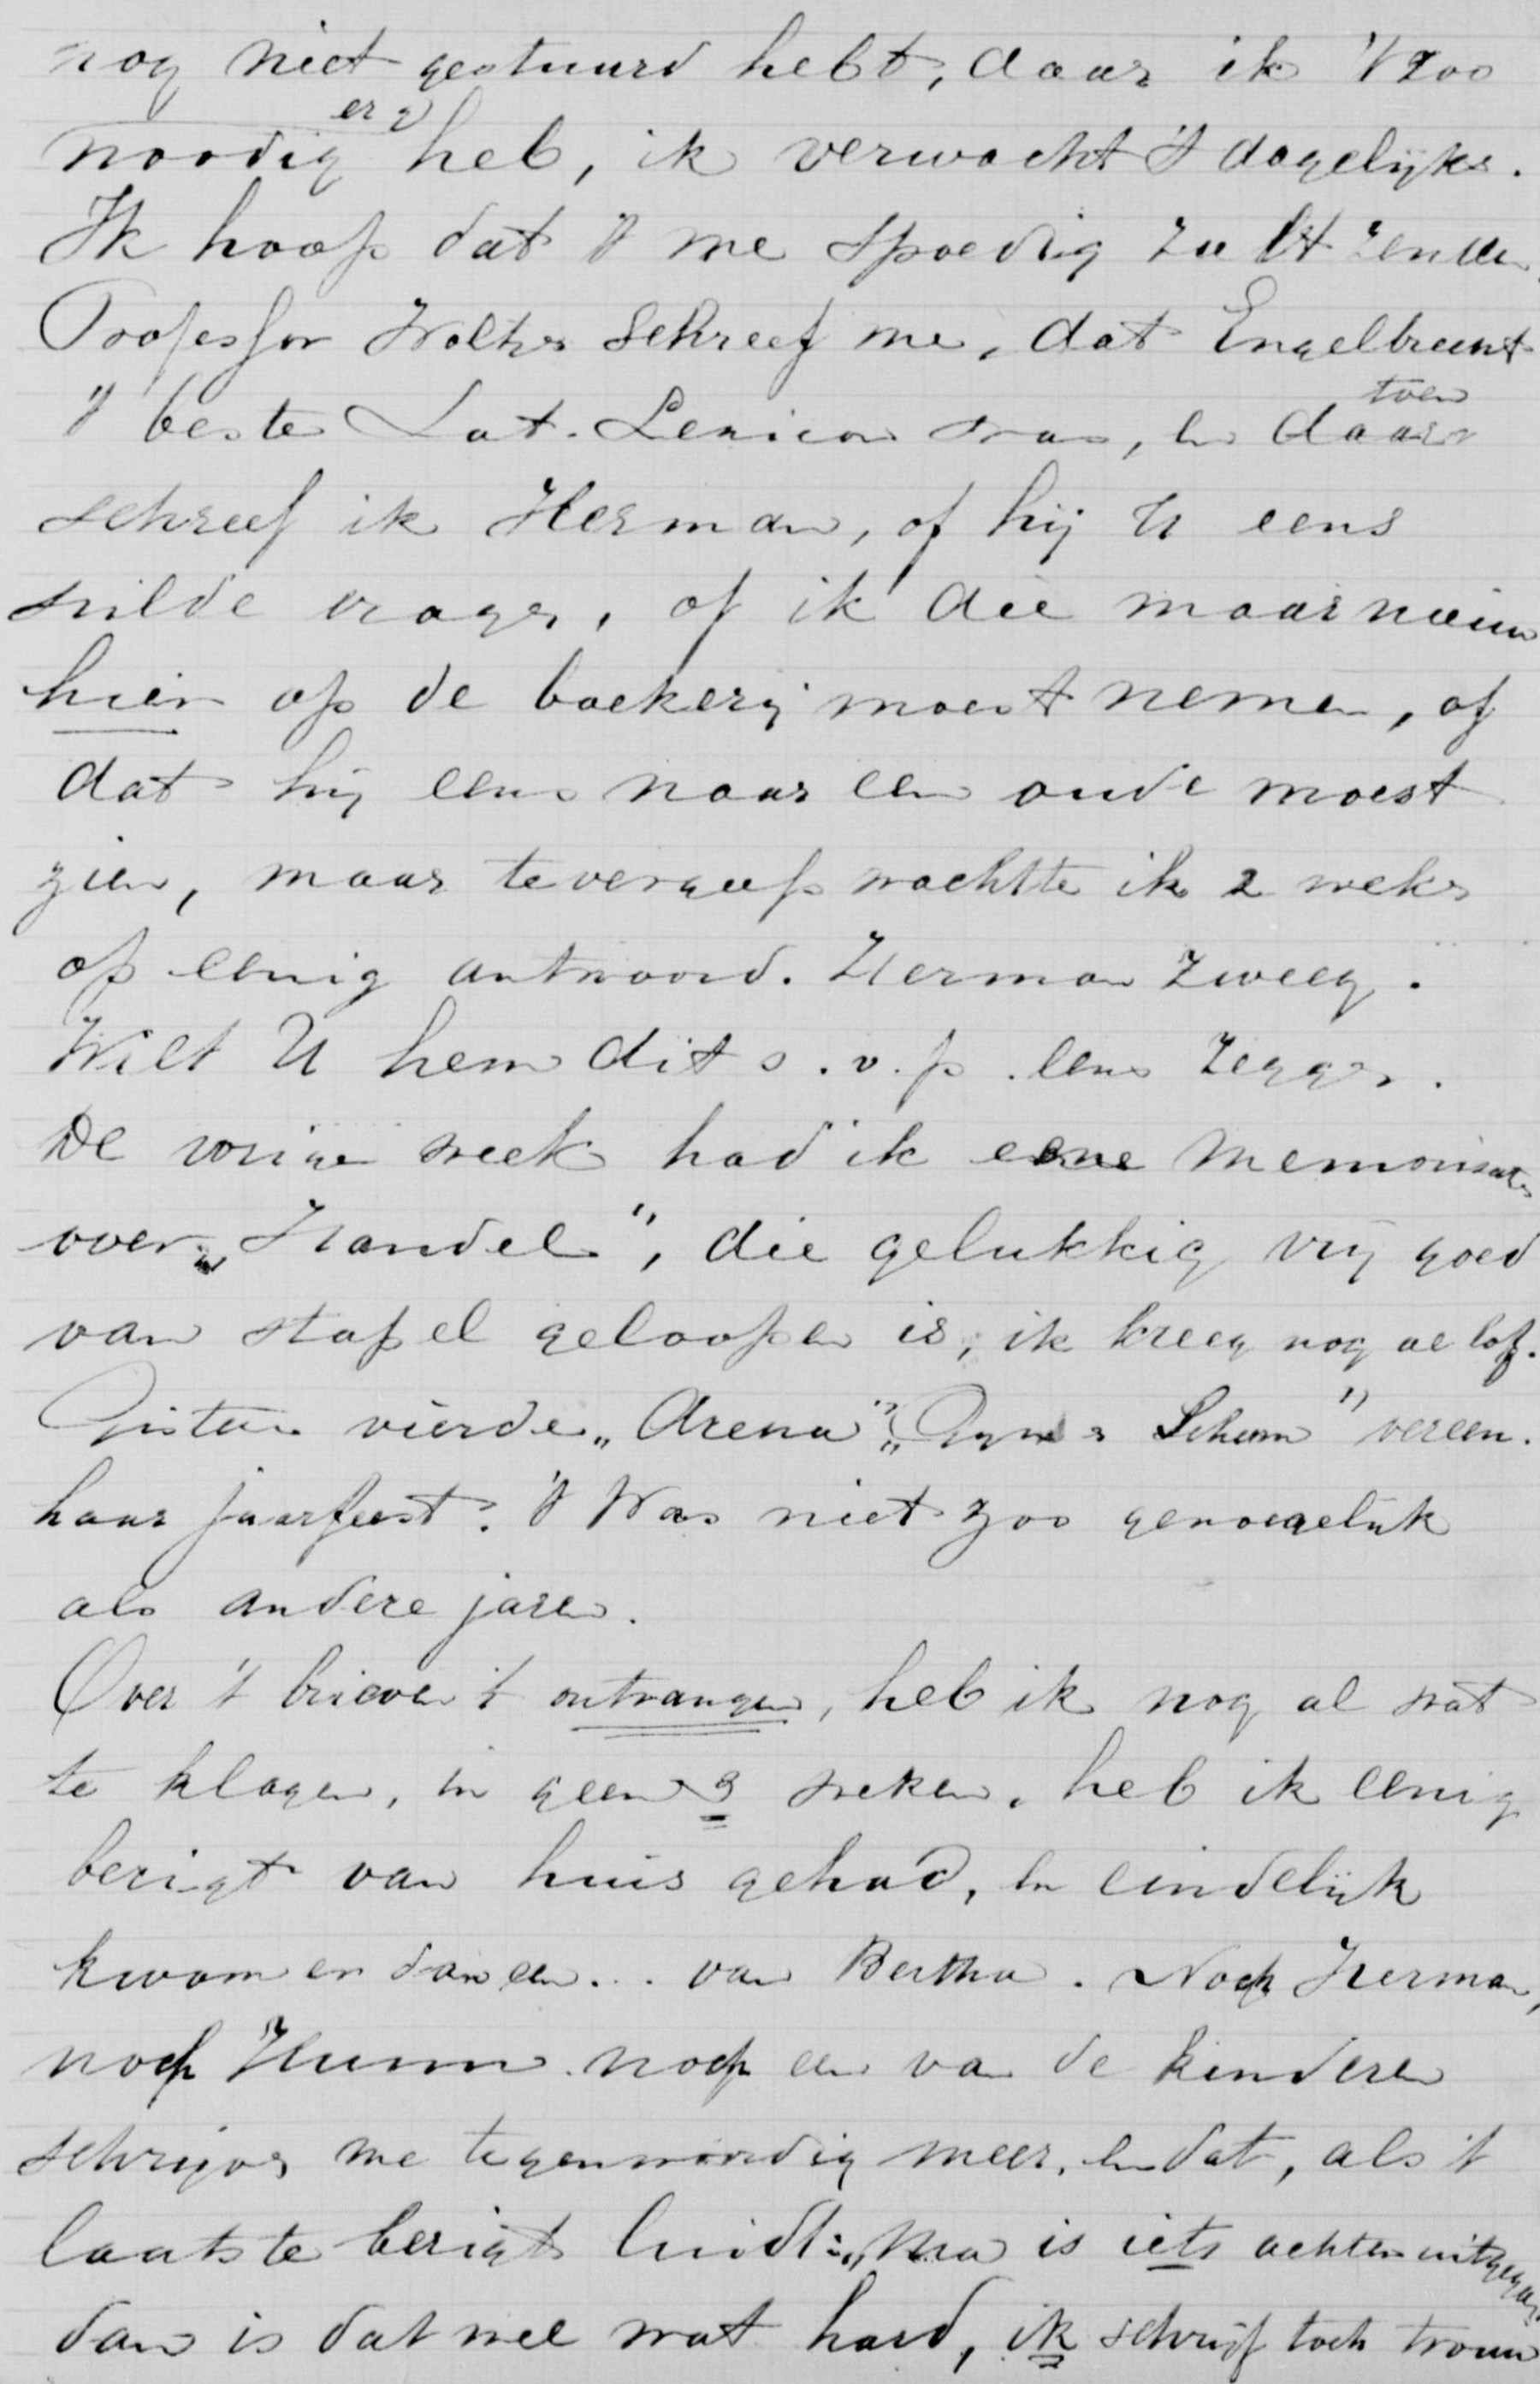 nog niet gestuurd hebt, daar ik 't zoo
noodig er heb, ik verwacht 't dagelijks.
Ik hoop dat 't me spoedig zult zenden
Professor Wolters schreef me, dat Engelbrecht
't beste Lat. Lexicon was, en toen
schreef ik Herman, of hij U eens
wilde vragen, of ik die maar nieuw
hier op de boekerij moest nemen, of
dat hij eens naar een oude moest
zien, maar tevergeefs wachtte ik 2 weken
op eenig antwoord. Herman zweeg.
Wilt U hem dit s.v.p. eens zeggen.
De vorige week had ik eene memorisatie
over „Handel", die gelukkig vrij goed
van stapel geloopen is, ik kreeg nog al lof.
Gisteren vierde „Arena" „Gymn. Scherm" vereen.
haar jaarfeest. 't Was niet zoo genoegelijk
als andere jaren.
Over 't brieven ontvangen, heb ik nog al wat
te klagen, in geen 3 weken, heb ik eenig
berigt van huis gehad, en eindelijk
kwam er dan een... van Bertha. Noch Herman,
noch noch een van de kinderen
schrijven me tegenwoordig meer, en dat, als 't
laatste berigt luidt: „Ma is iets achteruitgegaan
dan is dat wel wat hard, ik schrijf toch trouw